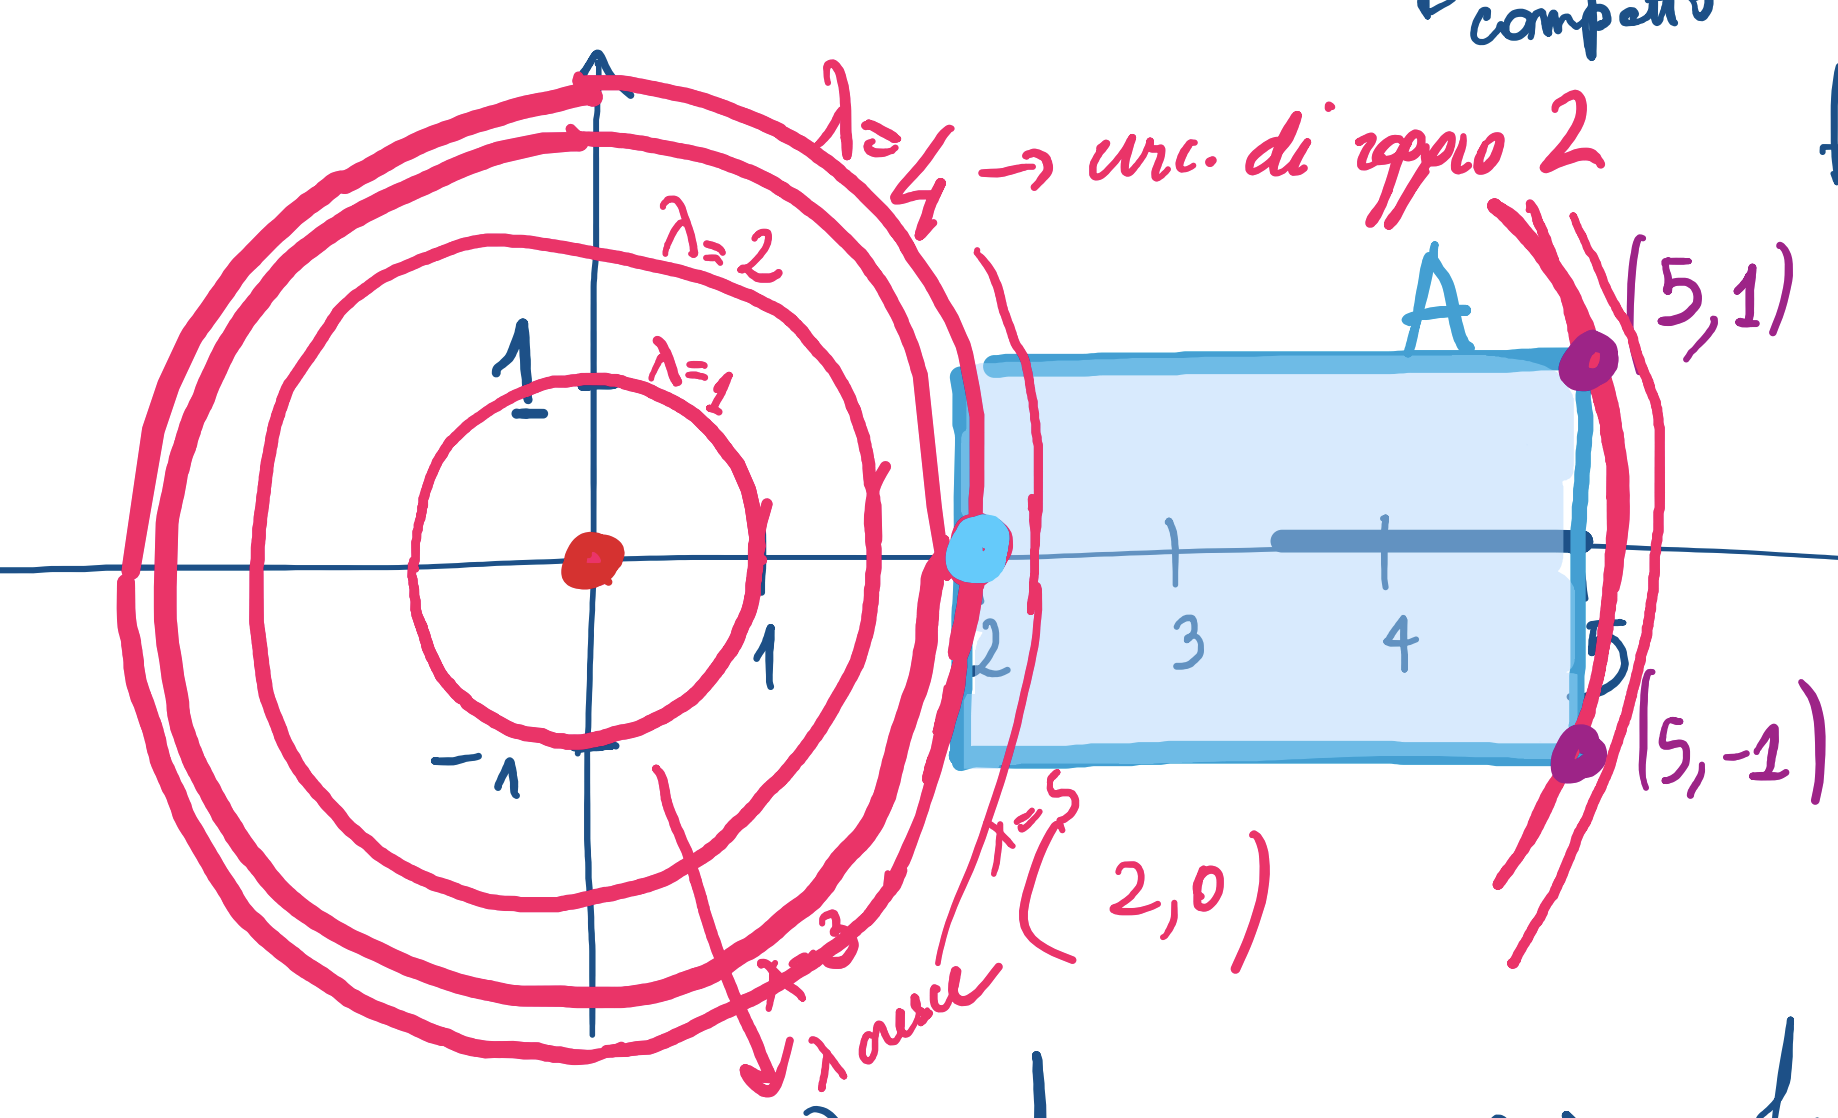 compatto
λ=4 → circ. di raggio 2
λ=2
A
(5,1)
1
λ=1
1
2
3
4
5
-1
(5,-1)
λ=5
(2,0)
λ=3
λ cresce